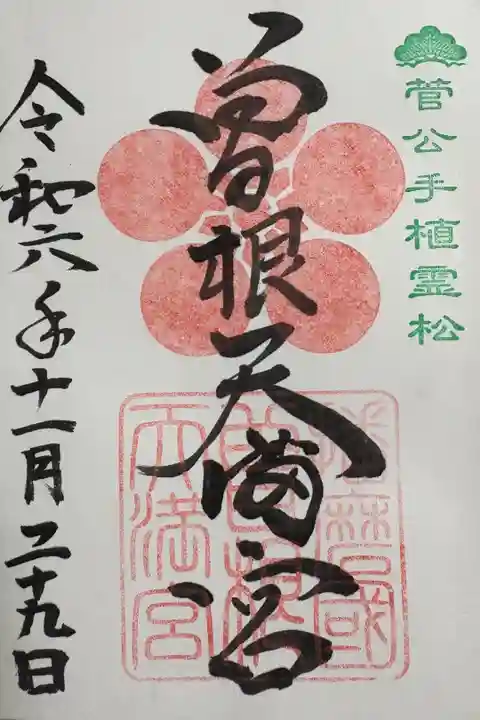 菅公手植霊松
曽根天満宮
播磨国
曽根
天満宮
令和六年十一月二十九日